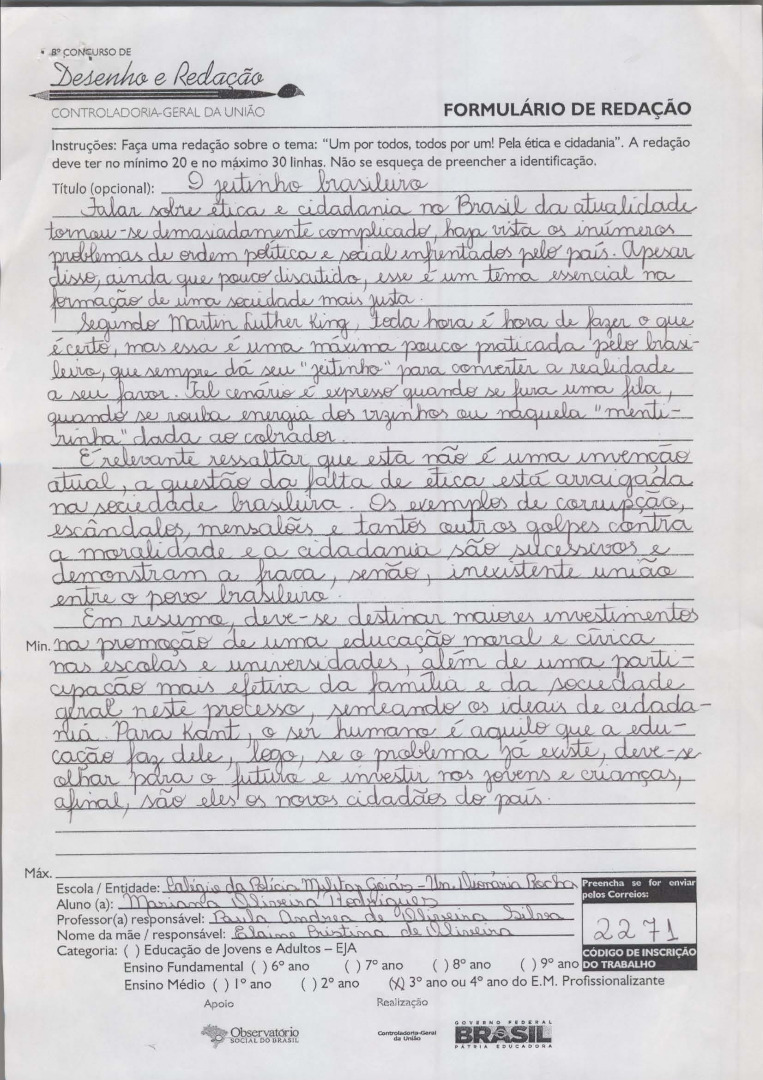 8º CONCURSO DE
Desenho e Redação
CONTROLADORIA-GERAL DA UNIÃO
FORMULÁRIO DE REDAÇÃO
Instruções: Faça uma redação sobre o tema: "Um por todos, todos por um! Pela ética e cidadania". A redação
deve ter no mínimo 20 e no máximo 30 linhas. Não se esqueça de preencher a identificação.
Título (opcional): O jeitinho brasileiro
Falar sobre ética e cidadania no Brasil da atualidade
tornou-se demasiadamente complicado, haja vista os inúmeros
problemas de ordem política e social enfrentados pelo país. Apesar
disso, ainda que pouco discutido, esse é um tema essencial na
formação de uma sociedade mais justa.
Segundo Martin Luther King, toda hora é hora de fazer o que
é certo, mas essa é uma máxima pouco praticada pelo brasi-
leiro, que sempre dá seu "jeitinho" para converter a realidade
a seu favor. Tal cenário é expresso quando se fura uma fila,
quando se rouba energia dos vizinhos ou naquela "menti-
rinha" dada ao cobrador.
É relevante ressaltar que esta não é uma invenção
atual, a questão da falta de ética está arraigada
na sociedade brasileira. Os exemplos de corrupção,
escândalos, mensalões e tantos outros golpes contra
a moralidade e a cidadania são sucessivos e
demonstram a fraca, senão, inexistente união
entre o povo brasileiro.
Em resumo, deve-se destinar maiores investimentos
Min. na promoção de uma educação moral e cívica
nas escolas e universidades, além de uma parti-
cipação mais efetiva da família e da sociedade
geral neste processo, semeando os ideais de cidada-
nia. Para Kant, o ser humano é aquilo que a edu-
cação faz dele, logo, se o problema já existe, deve-se
olhar para o futuro e investir nos jovens e crianças,
afinal, são eles os novos cidadãos do país.
Máx.
Escola / Entidade: Colégio da Polícia Militar Goiás - Un. Rocha
Aluno (a): Mariana Oliveira Rodrigues
Professor(a) responsável: Paula Andrea de Oliveira Silva
Nome da mãe / responsável: Elaine Cristina de Oliveira
Preencha se for enviar
pelos Correios:
2271
CÓDIGO DE INSCRIÇÃO
DO TRABALHO
Categoria: ( ) Educação de Jovens e Adultos – EJA
Ensino Fundamental ( ) 6º ano ( ) 7º ano ( ) 8º ano ( ) 9º ano
Ensino Médio ( ) 1º ano ( ) 2º ano (X) 3º ano ou 4º ano do E.M. Profissionalizante
Apoio Realização
Observatório
SOCIAL DO BRASIL
Controladoria-Geral
da União
GOVERNO FEDERAL
BRASIL
PÁTRIA EDUCADORA